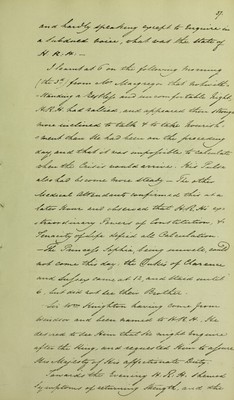 37
and hardly speaking except to enquire in
a subdued voice, what was the state of
H. R. H. —
I learnt at 6 on the following morning
(the 3d.) from Mr. Macgregor that notwith-
standing a restless and uncomfortable Night,
H.R.H. had rallied, and appeared then stronger
more inclined to talk & to take nourish-
-ment than He had been on the preceding
day, and that it was impossible to calculate
when the Crisis would arrive. His Pulse
also had become more steady — The other
Medical Attendants confirmed this at a
later Hour and observed that H.R.H.'s ex-
traordinary Powers of Constitution, &
Tenacity of Life defied all Calculation
— The Princess Sophia, being unwell, could
not come this day: the Dukes of Clarence
and Sussex came at 12, and staid until
6, but did not see their Brother.
Sir Wm Knighton having come from
Windsor and been named to H.R.H. He
desired to see Him that He might enquire
after the King, and requested Him to assure
His Majesty of His affectionate Duty.
Towards the Evening H.R.H. shewed
Symptoms of returning Strength, and the